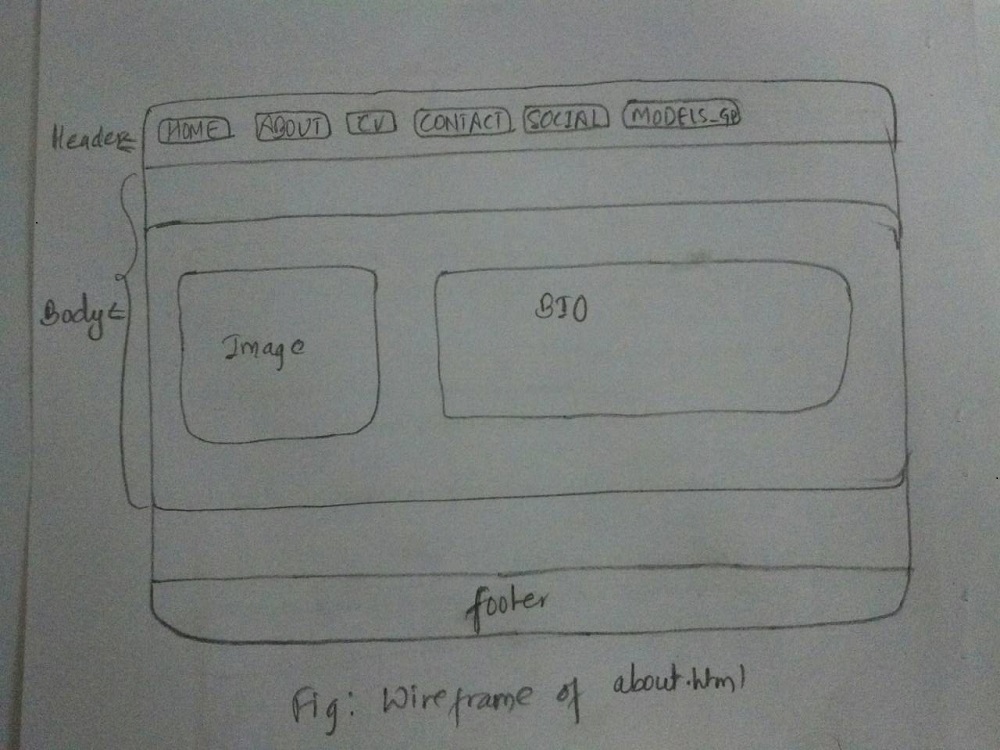 Header
HOME ABOUT CV CONTACT SOCIAL MODELS_GB
Body
Image
BIO
footer
Fig: Wireframe of about.html